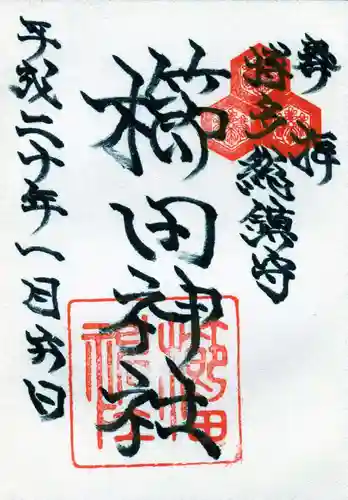 奉拝
博多総鎮守
櫛田神社
平成二十年一月廿日
櫛田神社